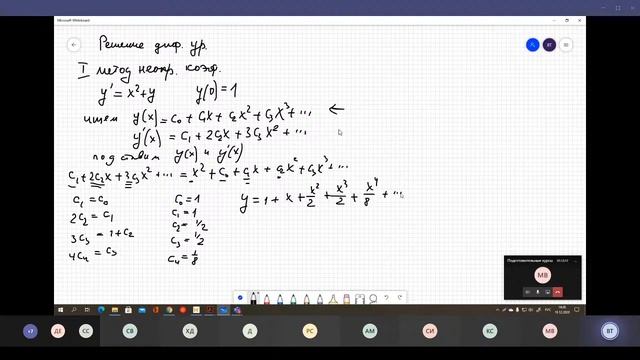 Microsoft Whiteboard
Решение диф. ур.
I метод неопр. коэф.
y' = x² + y    y(0) = 1
ищем y(x) = c₀ + c₁x + c₂x² + c₃x³ + ... ←
y'(x) = c₁ + 2c₂x + 3c₃x² + ...
подставим y(x) и y'(x)
c₁ + 2c₂x + 3c₃x² + ... = x² + c₀ + c₁x + c₂x² + c₃x³ + ...
c₁ = c₀    c₀ = 1    y = 1 + x + x²/2 + x³/2 + x⁴/8 + ...
2c₂ = c₁    c₁ = 1
3c₃ = 1 + c₂    c₂ = 1/2
4c₄ = c₃    c₃ = 1/2
c₄ = 1/8
Подготовительные курсы
МВ
ВТ
+7 ДЕ СС СВ ХД Д РС АМ СИ КС МВ ВТ